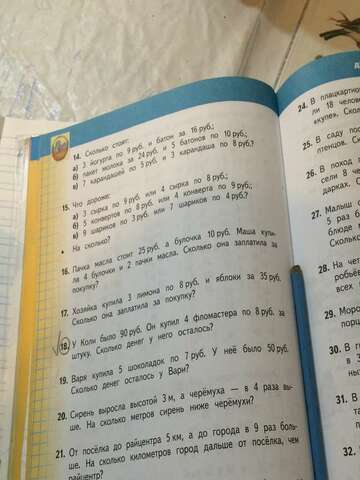 14. Сколько стоит:
а) 3 йогурта по 9 руб. и батон за 16 руб.;
б) пакет молока за 24 руб. и 5 батонов по 10 руб.;
в) 7 карандашей по 5 руб. и 3 карандаша по 8 руб.?
15. Что дороже:
а) 3 сырка по 9 руб. или 4 сырка по 8 руб.;
б) 5 конвертов по 8 руб. или 4 конверта по 9 руб.;
в) 9 шариков по 3 руб. или 7 шариков по 4 руб.?
• На сколько?
16. Пачка масла стоит 25 руб. а булочка 10 руб. Маша купи-
ла 4 булочки и 2 пачки масла. Сколько она заплатила за
покупку?
17. Хозяйка купила 3 лимона по 8 руб. и яблоки за 35 руб.
Сколько она заплатила за покупку?
18. У Коли было 90 руб. Он купил 4 фломастера по 8 руб. за
штуку. Сколько денег у него осталось?
19. Варя купила 5 шоколадок по 7 руб. У неё было 50 руб.
Сколько денег осталось у Вари?
20. Сирень выросла высотой 3 м, а черёмуха — в 4 раза вы-
ше. На сколько метров сирень ниже черёмухи?
21. От посёлка до райцентра 5 км, а до города в 9 раз боль-
ше. На сколько километров город дальше от посёлка, чем
райцентр?
24. В плацкартно
ли 18 челов
«купе». Сколь
25. В саду по
птенцов. Ск
26. В поход
сели 8 че
дарках. С
27. Малыш
5 раз
блюде
Сколько
28. На чет
робьёв
всех
29. Моро
порц
30. В г
в 3
н
31. В
т
в
32.